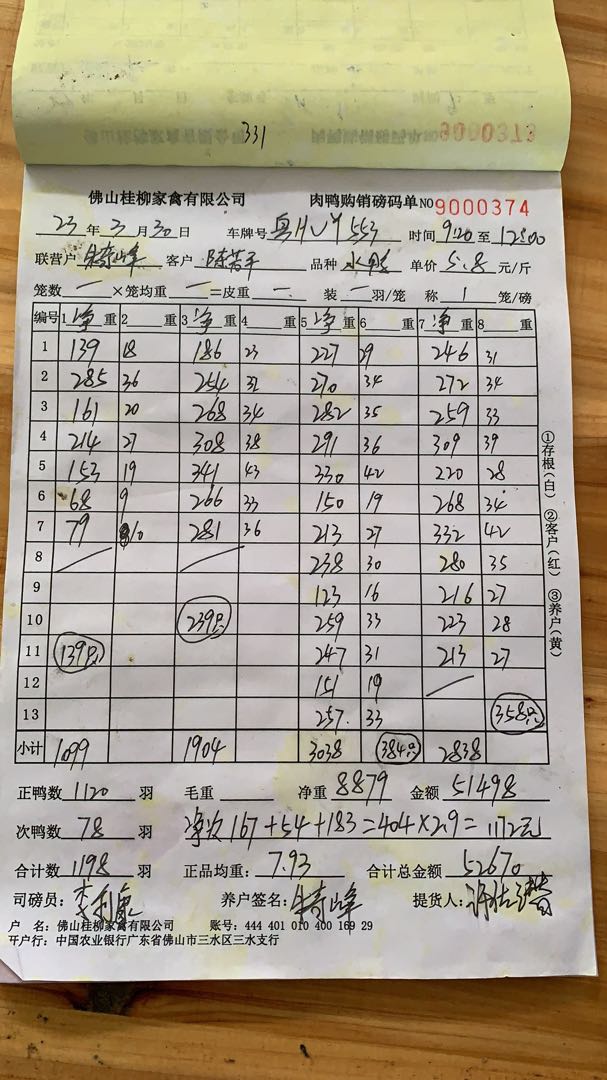 331
9000373
佛山桂柳家禽有限公司 肉鸭购销磅码单 NO 9000374
23 年 3 月 30 日 车牌号 553 时间 9:20 至 12:00
联营户 朱奇峰 客户 品种 水鸭 单价 5.8 元/斤
笼数 一 ×笼均重 一 =皮重 一 装 一 羽/笼 称 1 笼/磅
编号 1 净 重 2 重 3 净 重 4 重 5 净 重 6 重 7 净 重 8 重
1 139 18 186 23 227 29 246 31
2 285 36 254 32 270 34 272 34
3 161 20 268 34 282 35 259 33
4 214 27 308 38 291 36 309 39
5 153 19 341 43 330 42 220 28
6 68 9 266 33 150 19 268 34
7 79 10 281 36 213 27 332 42
8 238 30 280 35
9 123 16 216 27
10 239只 259 33 223 28
11 139只 247 31 213 27
12 151 19
13 257 33 358只
小计 1099 1904 3038 384只 2838
正鸭数 1120 羽 毛重 净重 8879 金额 51498
次鸭数 78 羽 净次 167+54+183=404×2.9=1172元
合计数 1198 羽 正品均重: 7.93 合计总金额 52670
司磅员: 李利康 养户签名: 朱奇峰 提货人:
户 名: 佛山桂柳家禽有限公司 账号: 444 401 010 400 169 29
开户行: 中国农业银行广东省佛山市三水区三水支行
①存根(白) ②客户(红) ③养户(黄)